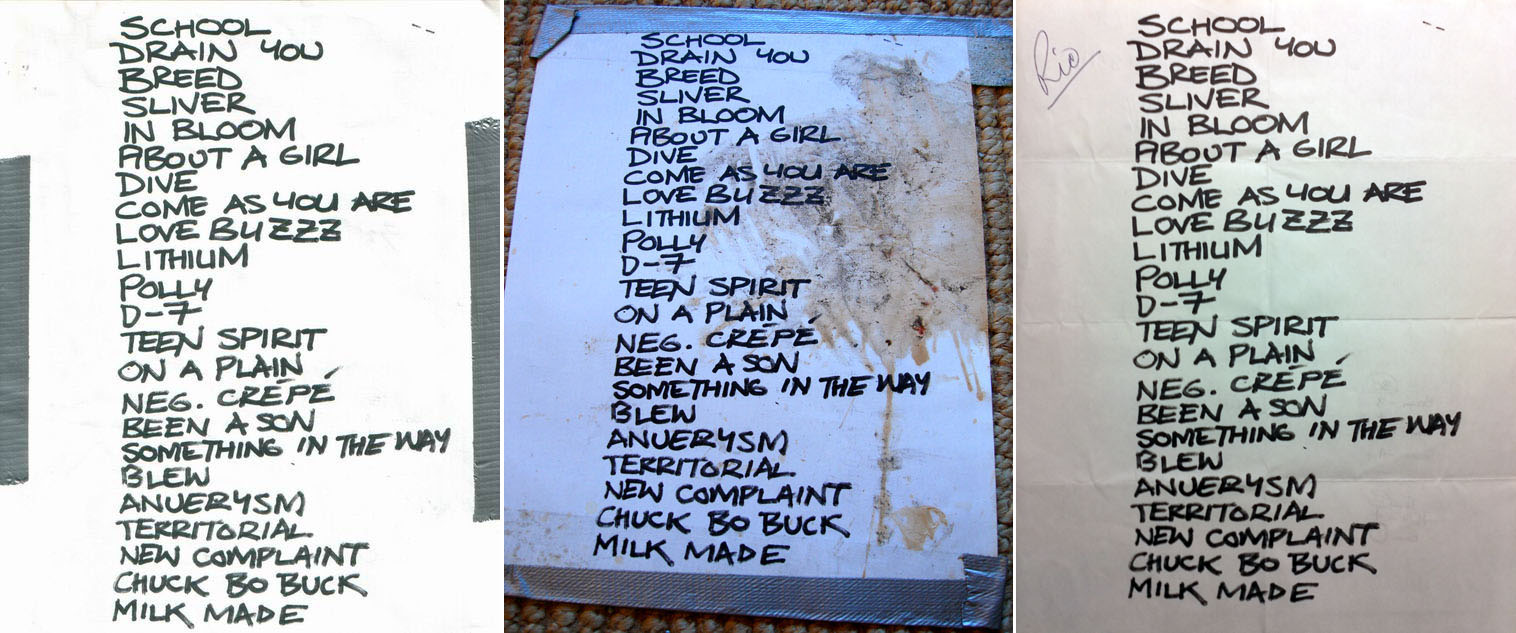 SCHOOL
DRAIN YOU
BREED
SLIVER
IN BLOOM
ABOUT A GIRL
DIVE
COME AS YOU ARE
LOVE BUZZZ
LITHIUM
POLLY
D-7
TEEN SPIRIT
ON A PLAIN
NEG. CRÉPÉ
BEEN A SON
SOMETHING IN THE WAY
BLEW
ANUERYSM
TERRITORIAL
NEW COMPLAINT
CHUCK BO BUCK
MILK MADE
SCHOOL
DRAIN YOU
BREED
SLIVER
IN BLOOM
ABOUT A GIRL
DIVE
COME AS YOU ARE
LOVE BUZZZ
LITHIUM
POLLY
D-7
TEEN SPIRIT
ON A PLAIN
NEG. CRÉPÉ
BEEN A SON
SOMETHING IN THE WAY
BLEW
ANUERYSM
TERRITORIAL
NEW COMPLAINT
CHUCK BO BUCK
MILK MADE
Rio
SCHOOL
DRAIN YOU
BREED
SLIVER
IN BLOOM
ABOUT A GIRL
DIVE
COME AS YOU ARE
LOVE BUZZZ
LITHIUM
POLLY
D-7
TEEN SPIRIT
ON A PLAIN
NEG. CRÉPÉ
BEEN A SON
SOMETHING IN THE WAY
BLEW
ANUERYSM
TERRITORIAL
NEW COMPLAINT
CHUCK BO BUCK
MILK MADE